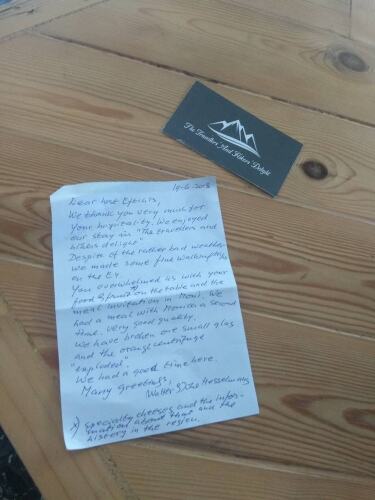 The Travellers' And Hikers' Delight
19-6-2018
Dear host
We thank you very much for
Your hospitality. We enjoyed
our stay in "The travellers and
hikers delight"
Despite of the rather bad weather
we made some fine walking trips
on the E4.
You overwhelmed us with your
food & fruit on the table and the
meal invitation in We
had a meal with Monica a second
time. Very good quality.
We have broken one small glas
and the orange centrifuge
"exploded"
We had a good time here.
Many greetings,
Walter &
x) specialty cheeses and the infor-
mation about that and the
history in the region.